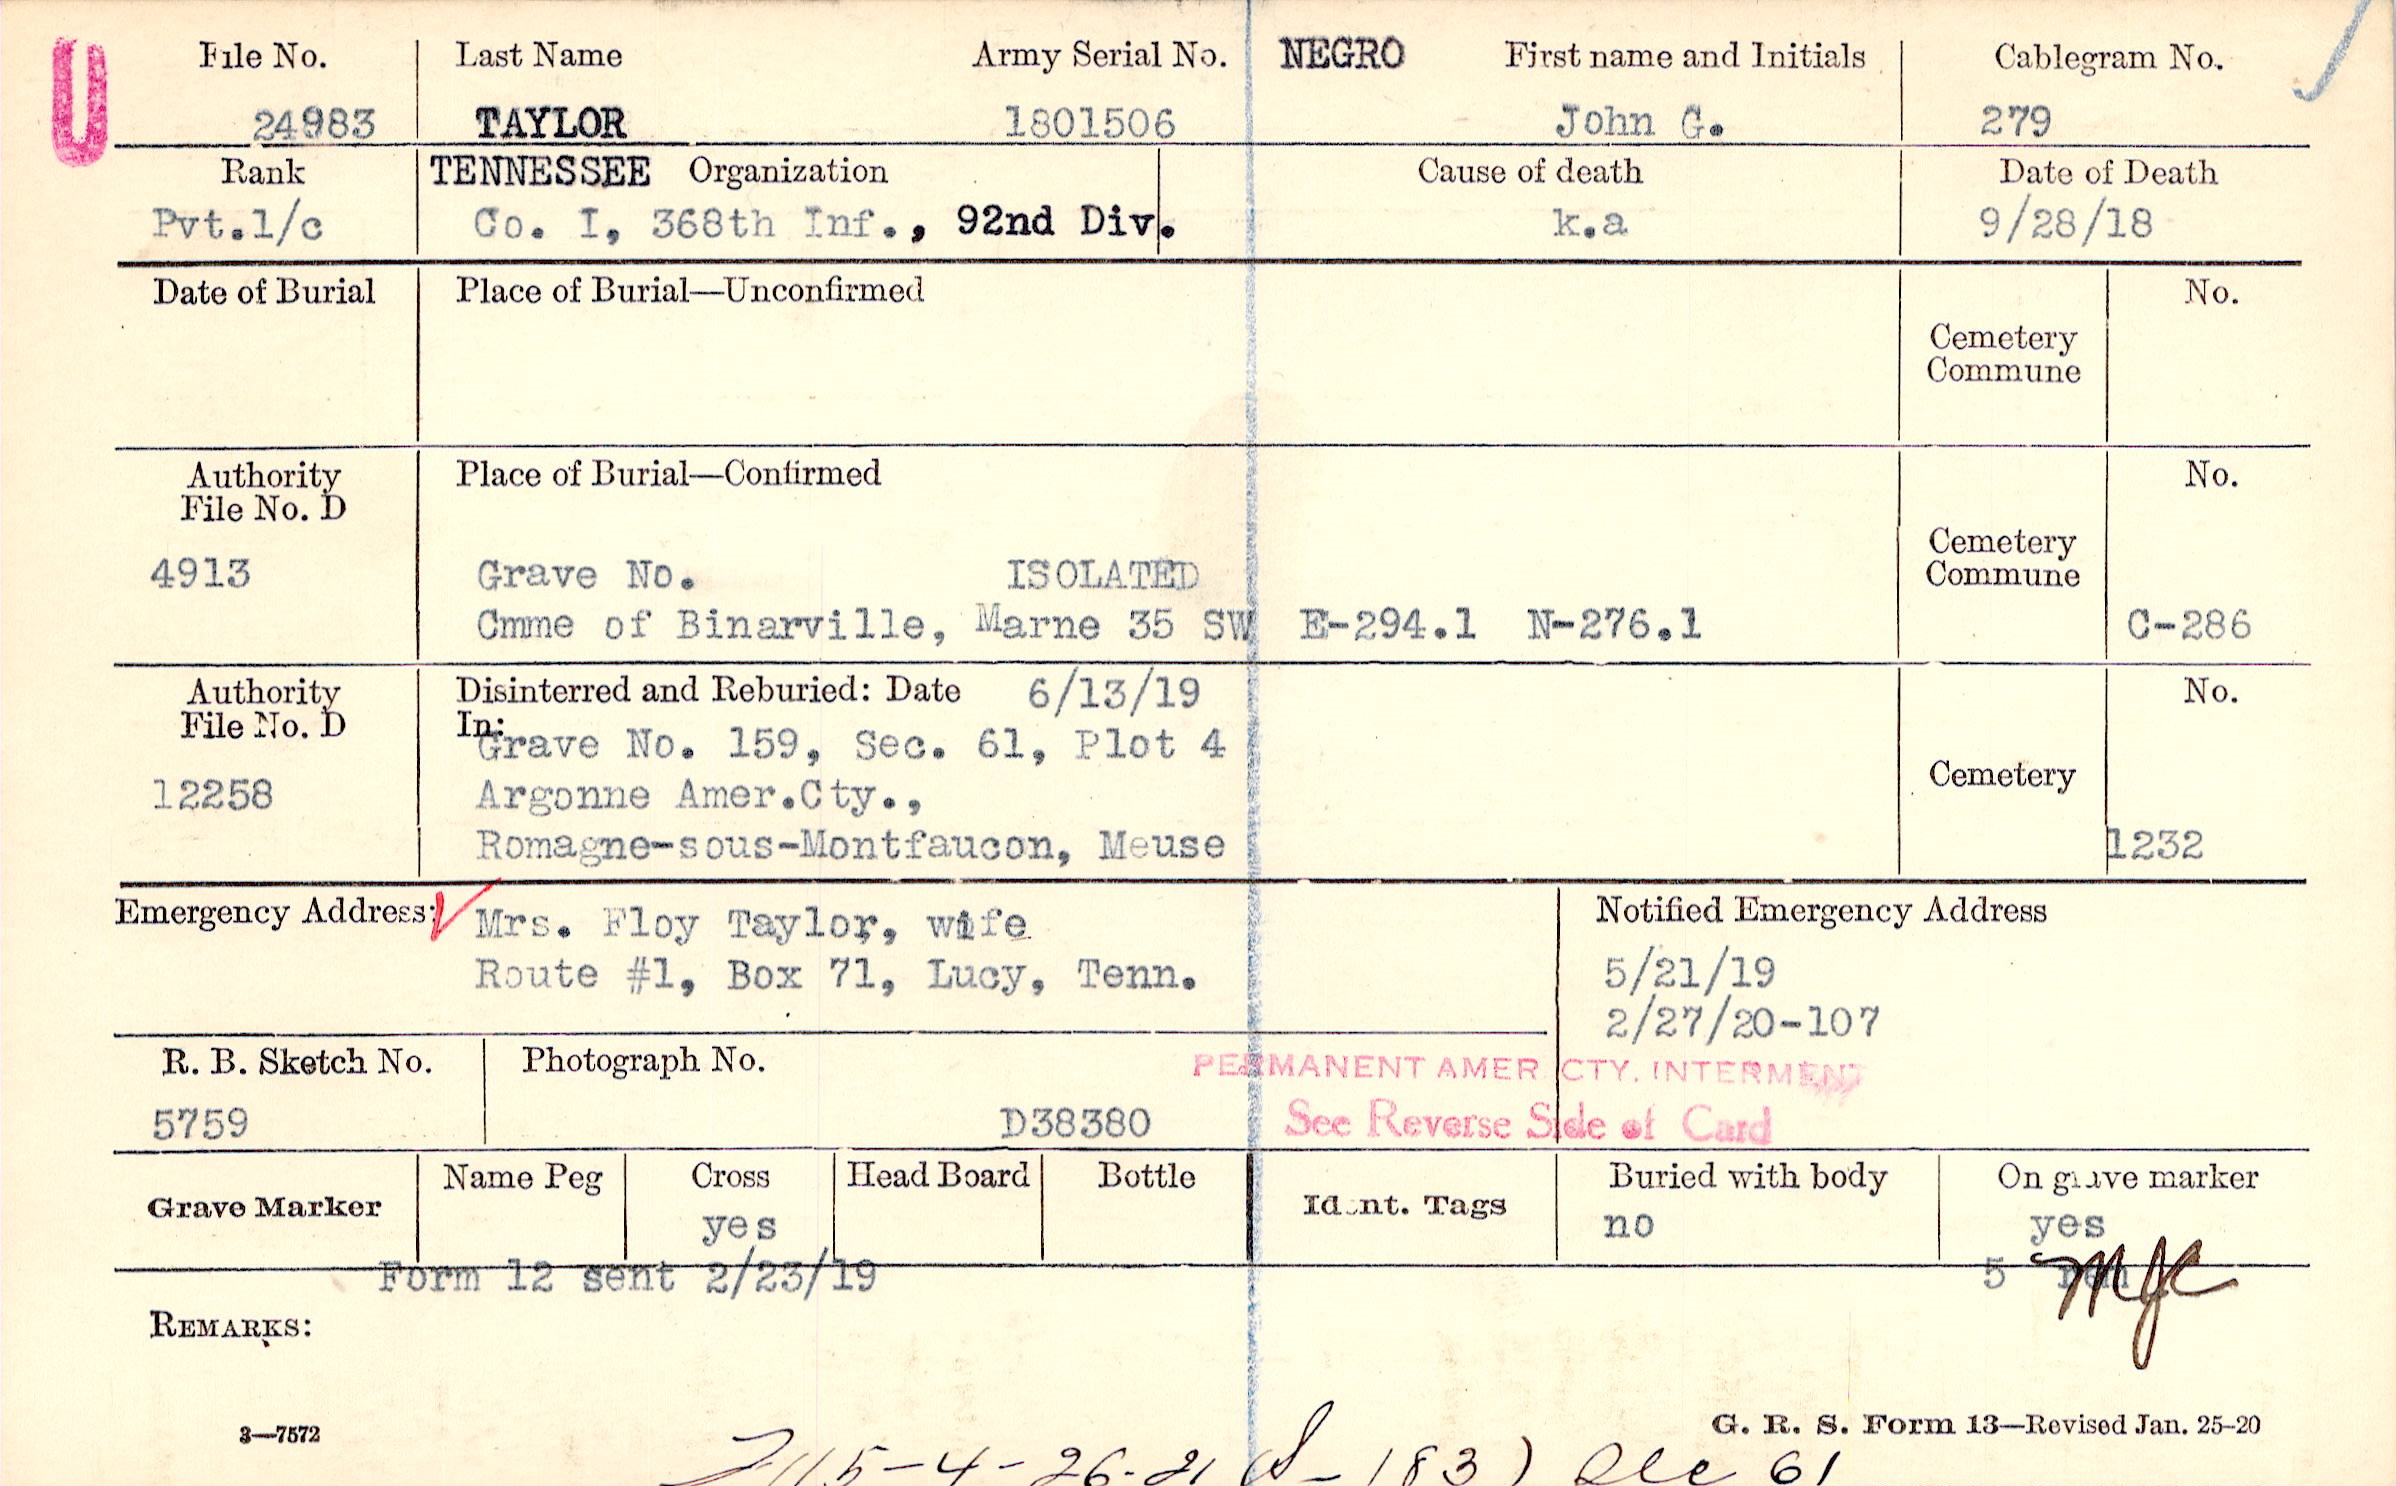 U
File No. Last Name Army Serial No. NEGRO First name and Initials Cablegram No.
24983 TAYLOR 1801506 John G. 279
Rank TENNESSEE Organization Cause of death Date of Death
Pvt.1/c Co. I, 368th Inf., 92nd Div. k.a 9/28/18
Date of Burial Place of Burial—Unconfirmed No.
Cemetery
Commune
Authority Place of Burial—Confirmed No.
File No. D
Cemetery
4913 Grave No. ISOLATED Commune
Cmme of Binarville, Marne 35 SW E-294.1 N-276.1 C-286
Authority Disinterred and Reburied: Date 6/13/19 No.
File No. D In:
Grave No. 159, Sec. 61, Plot 4
12258 Argonne Amer.Cty., Cemetery
Romagne-sous-Montfaucon, Meuse 1232
Emergency Address: Mrs. Floy Taylor, wife Notified Emergency Address
Route #1, Box 71, Lucy, Tenn. 5/21/19
2/27/20-107
R. B. Sketch No. Photograph No. PERMANENT AMER. CTY. INTERMENT
5759 D38380 See Reverse Side of Card
Grave Marker Name Peg Cross Head Board Bottle Ident. Tags Buried with body On grave marker
yes no yes
Form 12 sent 2/23/19 5 MJC
REMARKS:
3—7572 G. R. S. Form 13—Revised Jan. 25-20
4-26-21 (S-183) Dec 61